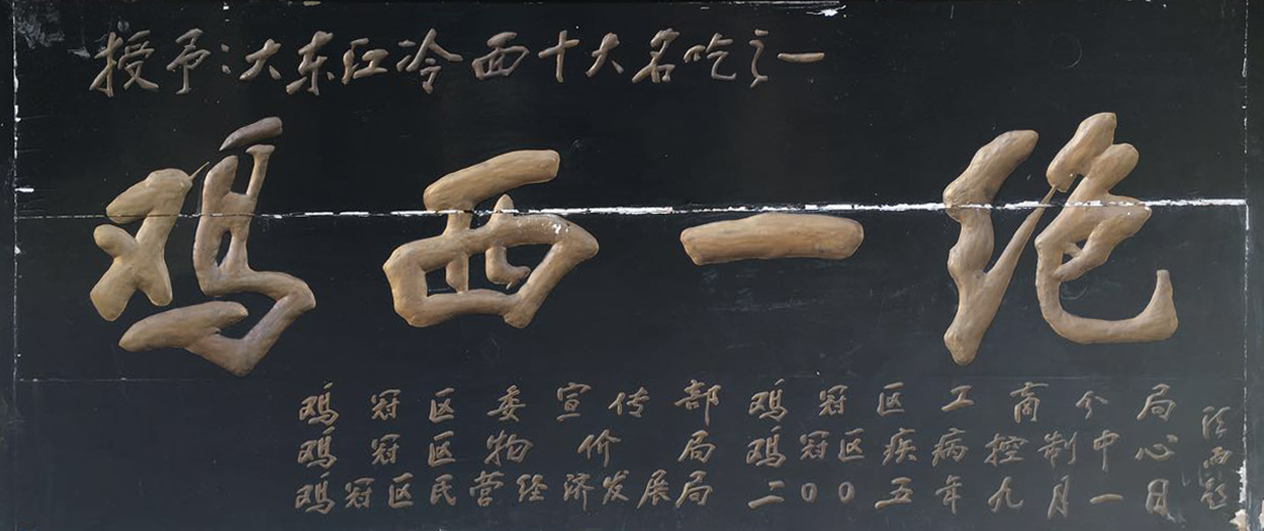 授予:大东江冷面十大名吃之一
鸡西一绝
鸡冠区委宣传部 鸡冠区工商分局
鸡冠区物价局 鸡冠区疾病控制中心
鸡冠区民营经济发展局 二00五年九月一日